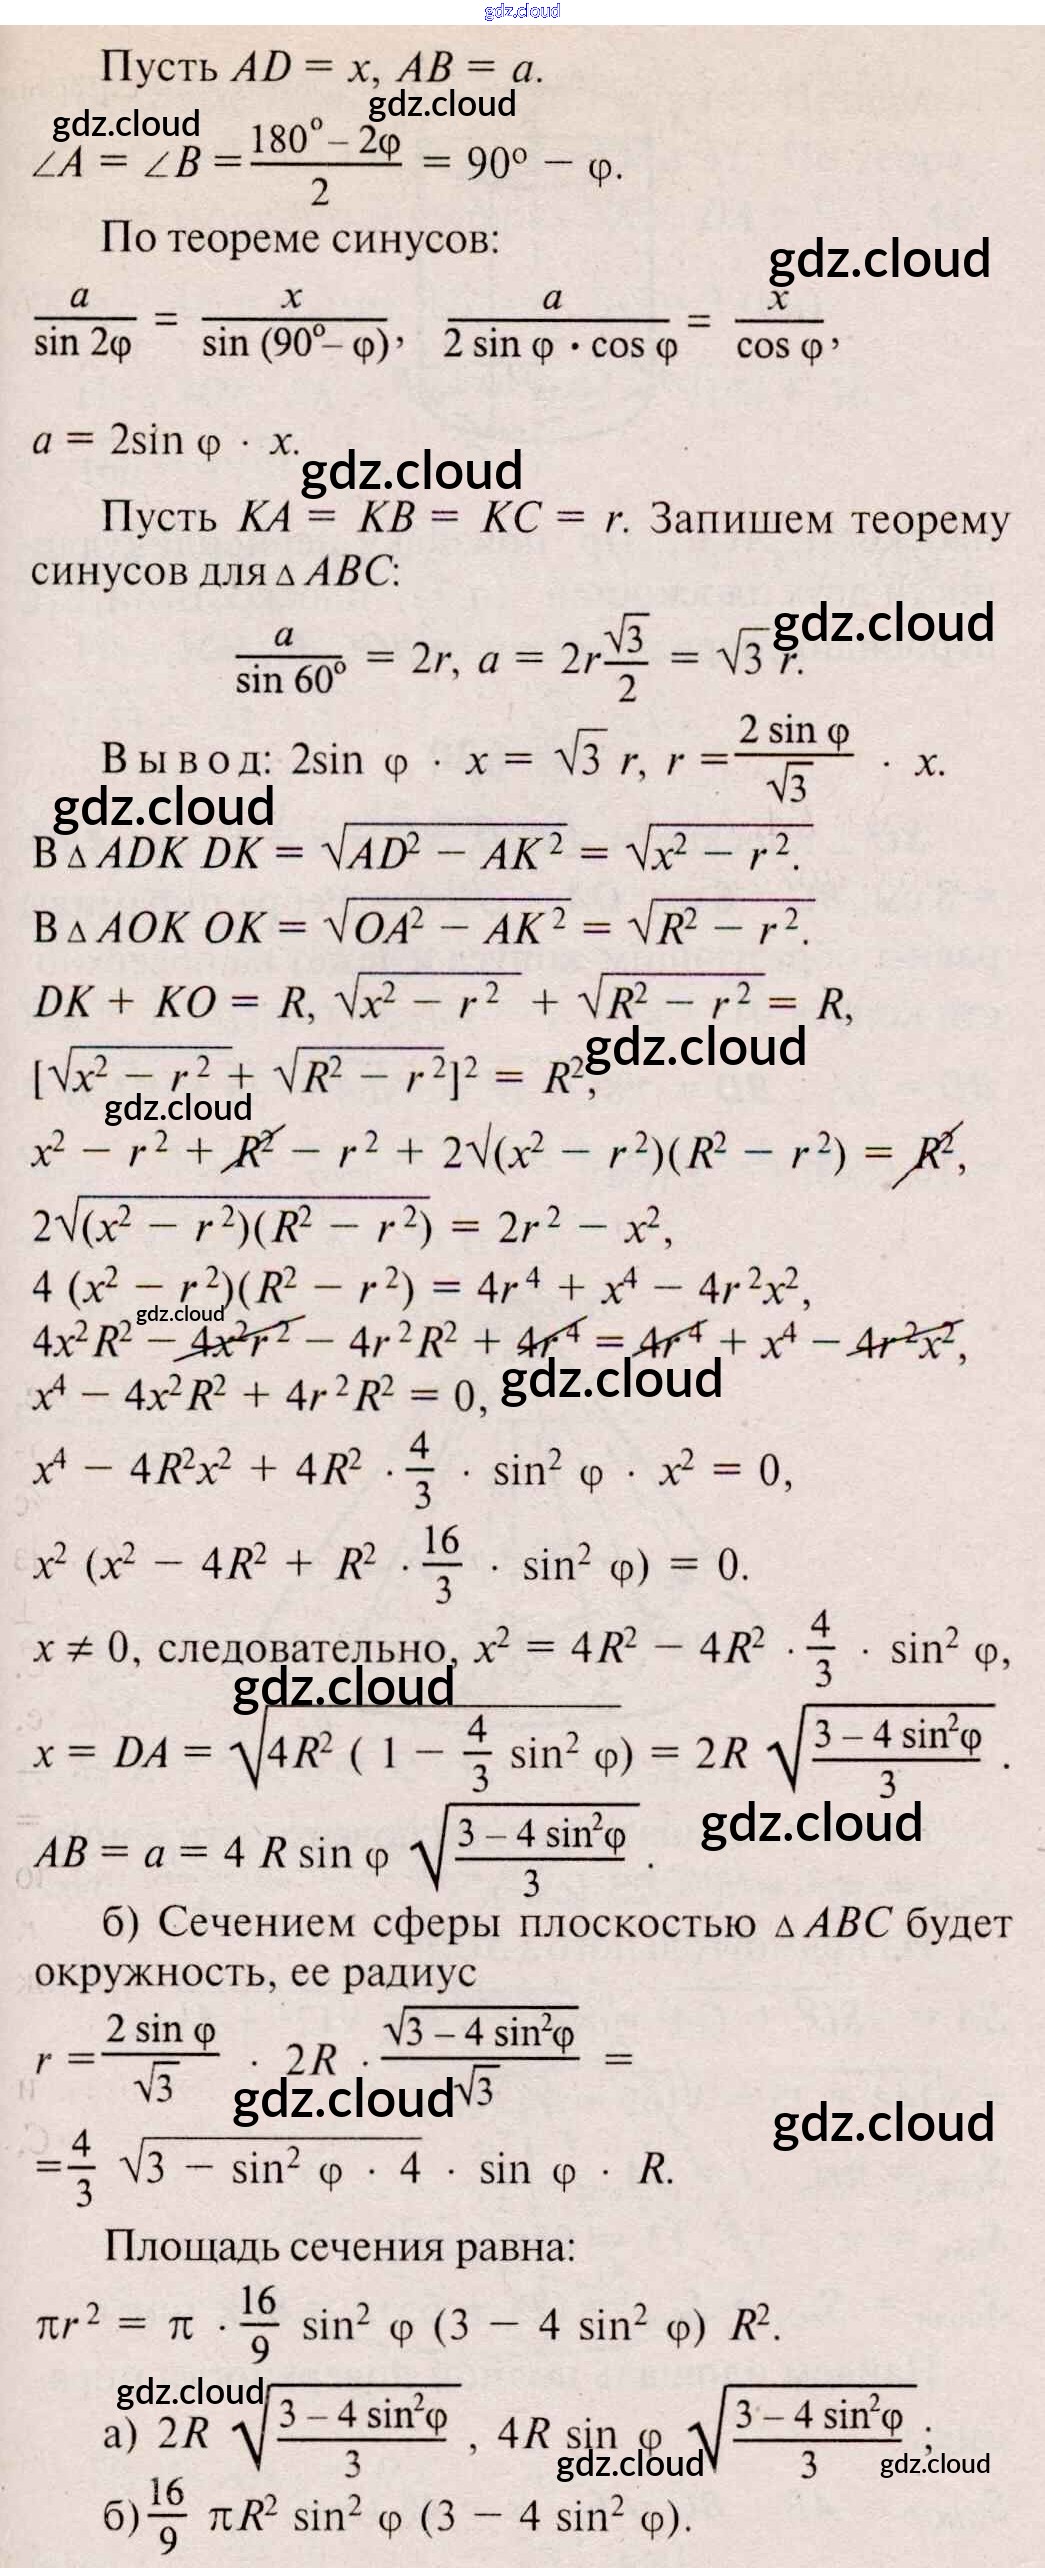 gdz.cloud
Пусть AD = x, AB = a.
gdz.cloud
gdz.cloud
∠A = ∠B = (180° – 2φ)/2 = 90° – φ.
По теореме синусов:
gdz.cloud
a/sin 2φ = x/sin (90° – φ), a/(2 sin φ · cos φ) = x/cos φ,
a = 2sin φ · x.
gdz.cloud
Пусть KA = KB = KC = r. Запишем теорему
синусов для △ABC:
gdz.cloud
a/sin 60° = 2r, a = 2r √3/2 = √3 r.
Вывод: 2sin φ · x = √3 r, r = (2 sin φ)/√3 · x.
gdz.cloud
В △ADK DK = √(AD² – AK²) = √(x² – r²).
В △AOK OK = √(OA² – AK²) = √(R² – r²).
DK + KO = R, √(x² – r²) + √(R² – r²) = R,
gdz.cloud
[√(x² – r²) + √(R² – r²)]² = R²,
gdz.cloud
x² – r² + R² – r² + 2√(x² – r²)(R² – r²) = R²,
2√((x² – r²)(R² – r²)) = 2r² – x²,
4 (x² – r²)(R² – r²) = 4r⁴ + x⁴ – 4r²x²,
gdz.cloud
4x²R² – 4x²r² – 4r²R² + 4r⁴ = 4r⁴ + x⁴ – 4r²x²,
gdz.cloud
x⁴ – 4x²R² + 4r²R² = 0,
x⁴ – 4R²x² + 4R² · 4/3 · sin² φ · x² = 0,
x² (x² – 4R² + R² · 16/3 · sin² φ) = 0.
x ≠ 0, следовательно, x² = 4R² – 4R² · 4/3 · sin² φ,
gdz.cloud
x = DA = √(4R² ( 1 – 4/3 sin² φ)) = 2R √((3 – 4 sin²φ)/3) .
gdz.cloud
AB = a = 4 R sin φ √((3 – 4 sin²φ)/3) .
б) Сечением сферы плоскостью △ABC будет
окружность, ее радиус
r = (2 sin φ)/√3 · 2R · √(3 – 4 sin²φ)/√3 =
gdz.cloud
gdz.cloud
= 4/3 √(3 – sin² φ · 4) · sin φ · R.
Площадь сечения равна:
πr² = π · 16/9 sin² φ (3 – 4 sin² φ) R².
gdz.cloud
а) 2R √((3 – 4 sin²φ)/3) , 4R sin φ √((3 – 4 sin²φ)/3) ;
gdz.cloud
gdz.cloud
б) 16/9 πR² sin² φ (3 – 4 sin² φ).